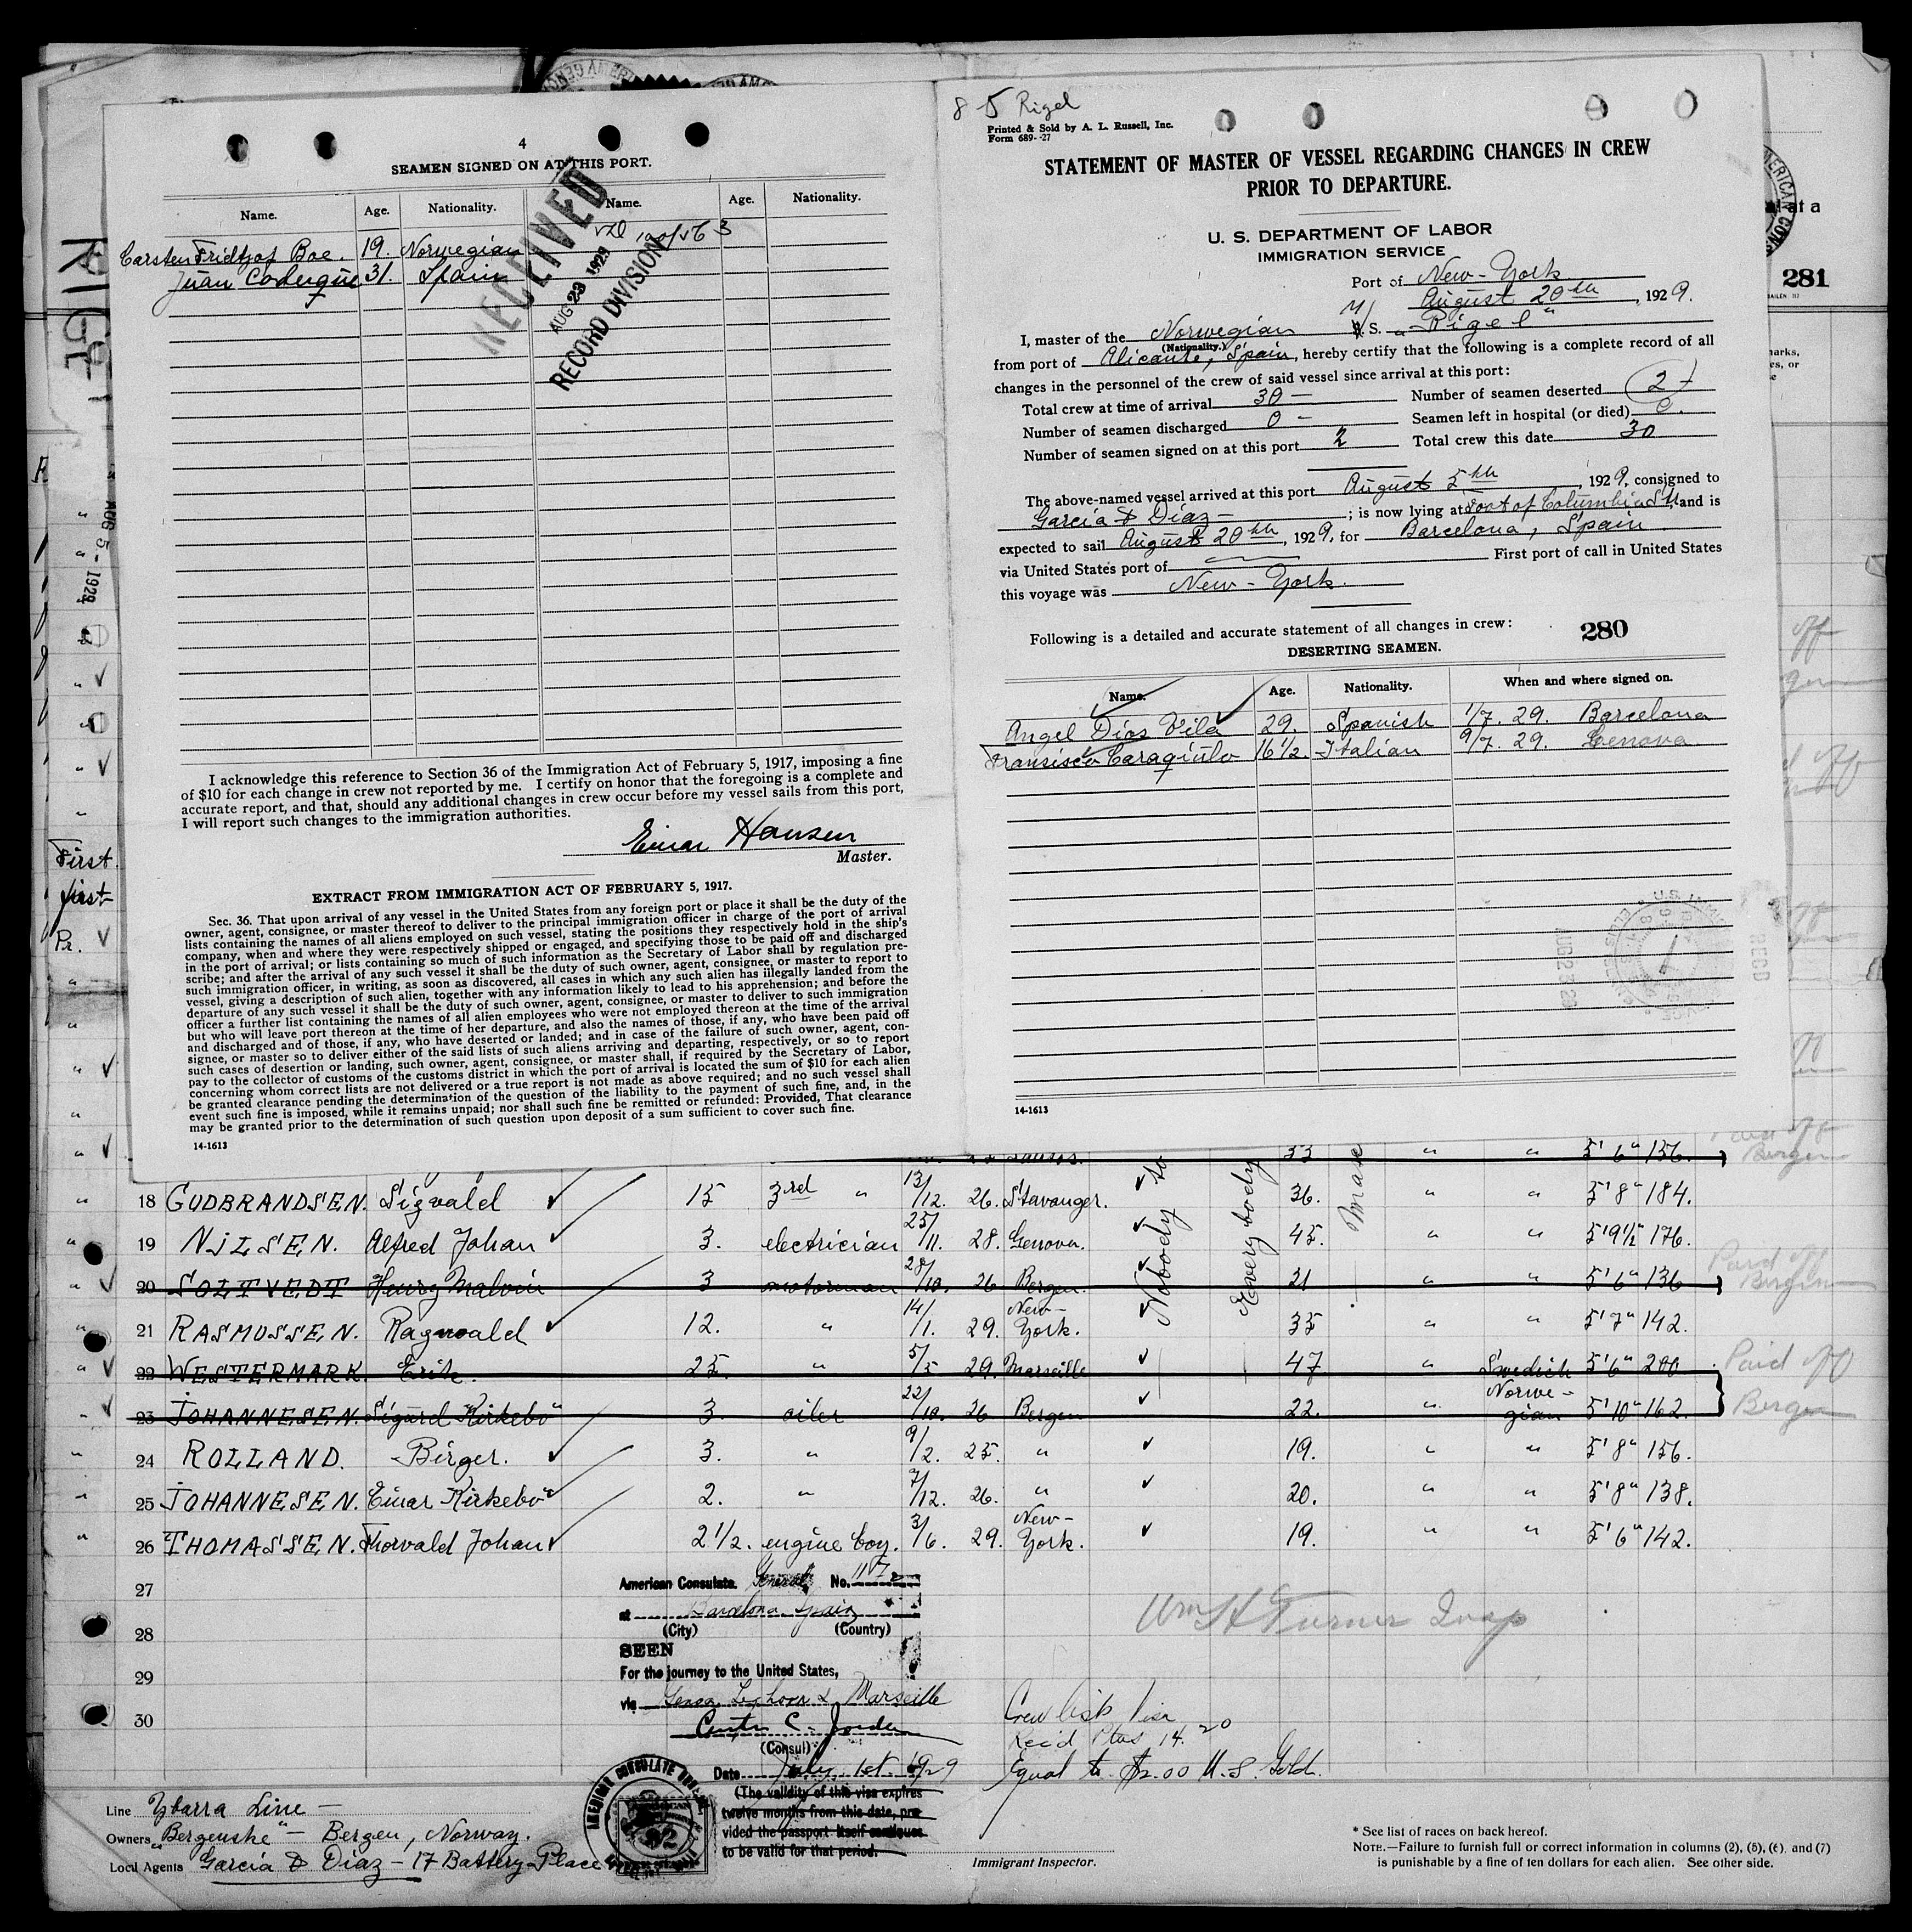 4
SEAMEN SIGNED ON AT THIS PORT.
Name. Age. Nationality. Name. Age. Nationality.
Carsten Fridtjof Boe. 19. Norwegian
Juan Coderque 31. Spain
RECEIVED
AUG 23 1929
RECORD DIVISION
I acknowledge this reference to Section 36 of the Immigration Act of February 5, 1917, imposing a fine
of $10 for each change in crew not reported by me. I certify on honor that the foregoing is a complete and
accurate report, and that, should any additional changes in crew occur before my vessel sails from this port,
I will report such changes to the immigration authorities.
Einar Hansen
Master.
EXTRACT FROM IMMIGRATION ACT OF FEBRUARY 5, 1917.
Sec. 36. That upon arrival of any vessel in the United States from any foreign port or place it shall be the duty of the
owner, agent, consignee, or master thereof to deliver to the principal immigration officer in charge of the port of arrival
lists containing the names of all aliens employed on such vessel, stating the positions they respectively hold in the ship's
company, when and where they were respectively shipped or engaged, and specifying those to be paid off and discharged
in the port of arrival; or lists containing so much of such information as the Secretary of Labor shall by regulation pre-
scribe; and after the arrival of any such vessel it shall be the duty of such owner, agent, consignee, or master to report to
such immigration officer, in writing, as soon as discovered, all cases in which any such alien has illegally landed from the
vessel, giving a description of such alien, together with any information likely to lead to his apprehension; and before the
departure of any such vessel it shall be the duty of such owner, agent, consignee, or master to deliver to such immigration
officer a further list containing the names of all alien employees who were not employed thereon at the time of the arrival
but who will leave port thereon at the time of her departure, and also the names of those, if any, who have been paid off
and discharged and of those, if any, who have deserted or landed; and in case of the failure of such owner, agent, con-
signee, or master so to deliver either of the said lists of such aliens arriving and departing, respectively, or so to report
such cases of desertion or landing, such owner, agent, consignee, or master shall, if required by the Secretary of Labor,
pay to the collector of customs of the customs district in which the port of arrival is located the sum of $10 for each alien
concerning whom correct lists are not delivered or a true report is not made as above required; and no such vessel shall
be granted clearance pending the determination of the question of the liability to the payment of such fine, and, in the
event such fine is imposed, while it remains unpaid; nor shall such fine be remitted or refunded: Provided, That clearance
may be granted prior to the determination of such question upon deposit of a sum sufficient to cover such fine.
14-1613
8 5 Rigel
Printed & Sold by A. L. Russell, Inc.
Form 689--27
STATEMENT OF MASTER OF VESSEL REGARDING CHANGES IN CREW
PRIOR TO DEPARTURE.
U. S. DEPARTMENT OF LABOR
IMMIGRATION SERVICE
Port of New-York
August 20th, 1929.
I, master of the Norwegian M/S. "Rigel"
(Nationality.)
from port of Alicante, Spain, hereby certify that the following is a complete record of all
changes in the personnel of the crew of said vessel since arrival at this port:
Total crew at time of arrival 30 - Number of seamen deserted 2
Number of seamen discharged 0 - Seamen left in hospital (or died) 0.
Number of seamen signed on at this port 2 Total crew this date 30
The above-named vessel arrived at this port August 5th, 1929, consigned to
Garcia & Diaz - ; is now lying at foot of Columbia St, and is
expected to sail August 20th, 1929, for Barcelona, Spain
via United States port of First port of call in United States
this voyage was New-York.
Following is a detailed and accurate statement of all changes in crew: 280
DESERTING SEAMEN.
Name. Age. Nationality. When and where signed on.
Angel Dios Vila 29. Spanish 1/7. 29. Barcelona
Fransisco Caragiulo 16½. Italian 9/7. 29. Genova
14-1613
281
AUG 5 - 1929
First.
first
Pr.
33 " " 5'6" 156. Paid off Bergen
18 GUDBRANDSEN. Sigvald 15 3rd " 13/12. 26. Stavanger. 36. " " 5'8" 184.
19 NILSEN. Alfred Johan 3. electrician 25/11. 28. Genova. 45. " " 5'9½" 176.
20 SOLTVEDT Henry Malvin 3 motorman 28/10. 26 Bergen. 21 " " 5'6" 136 Paid off Bergen
21 RASMUSSEN. Ragnvald 12. " 14/1. 29. New-York. 35 " " 5'7" 142.
22 WESTERMARK. Erik. 25. " 5/5 29. Marseille 47. " Swedish 5'6" 200 Paid off
23 JOHANNESEN. Sigurd Kirkebö 3. oiler 22/10. 26 Bergen 22. " Norwegian 5'10" 162. Bergen
24 ROLLAND. Birger. 3. " 9/2. 25. " 19. " " 5'8" 156.
25 JOHANNESEN. Einar Kirkebö 2. " 7/12. 26. " 20. " " 5'8" 138.
26 THOMASSEN. Thorvald Johan 2½. engine boy. 3/6. 29. New-York. 19. " " 5'6" 142.
Nobody to
Everybody
27
28
29
30
American Consulate General No.
at Barcelona, Spain
(City) (Country)
SEEN
For the journey to the United States,
via Genoa, Leghorn & Marseille
(Consul)
Date July 1st 1929
(The validity of this visa expires
twelve months from this date, pro-
vided the passport itself continues
to be valid for that period.
Wm H Turner Insp
Crew list visa
Rec'd Ptas 14.20
Equal to $2.00 U.S. Gold.
Line Ybarra Line -
Owners "Bergenske" - Bergen, Norway.
Local Agents Garcia & Diaz - 17 Battery Place
Immigrant Inspector.
* See list of races on back hereof.
NOTE.—Failure to furnish full or correct information in columns (2), (5), (6), and (7)
is punishable by a fine of ten dollars for each alien. See other side.